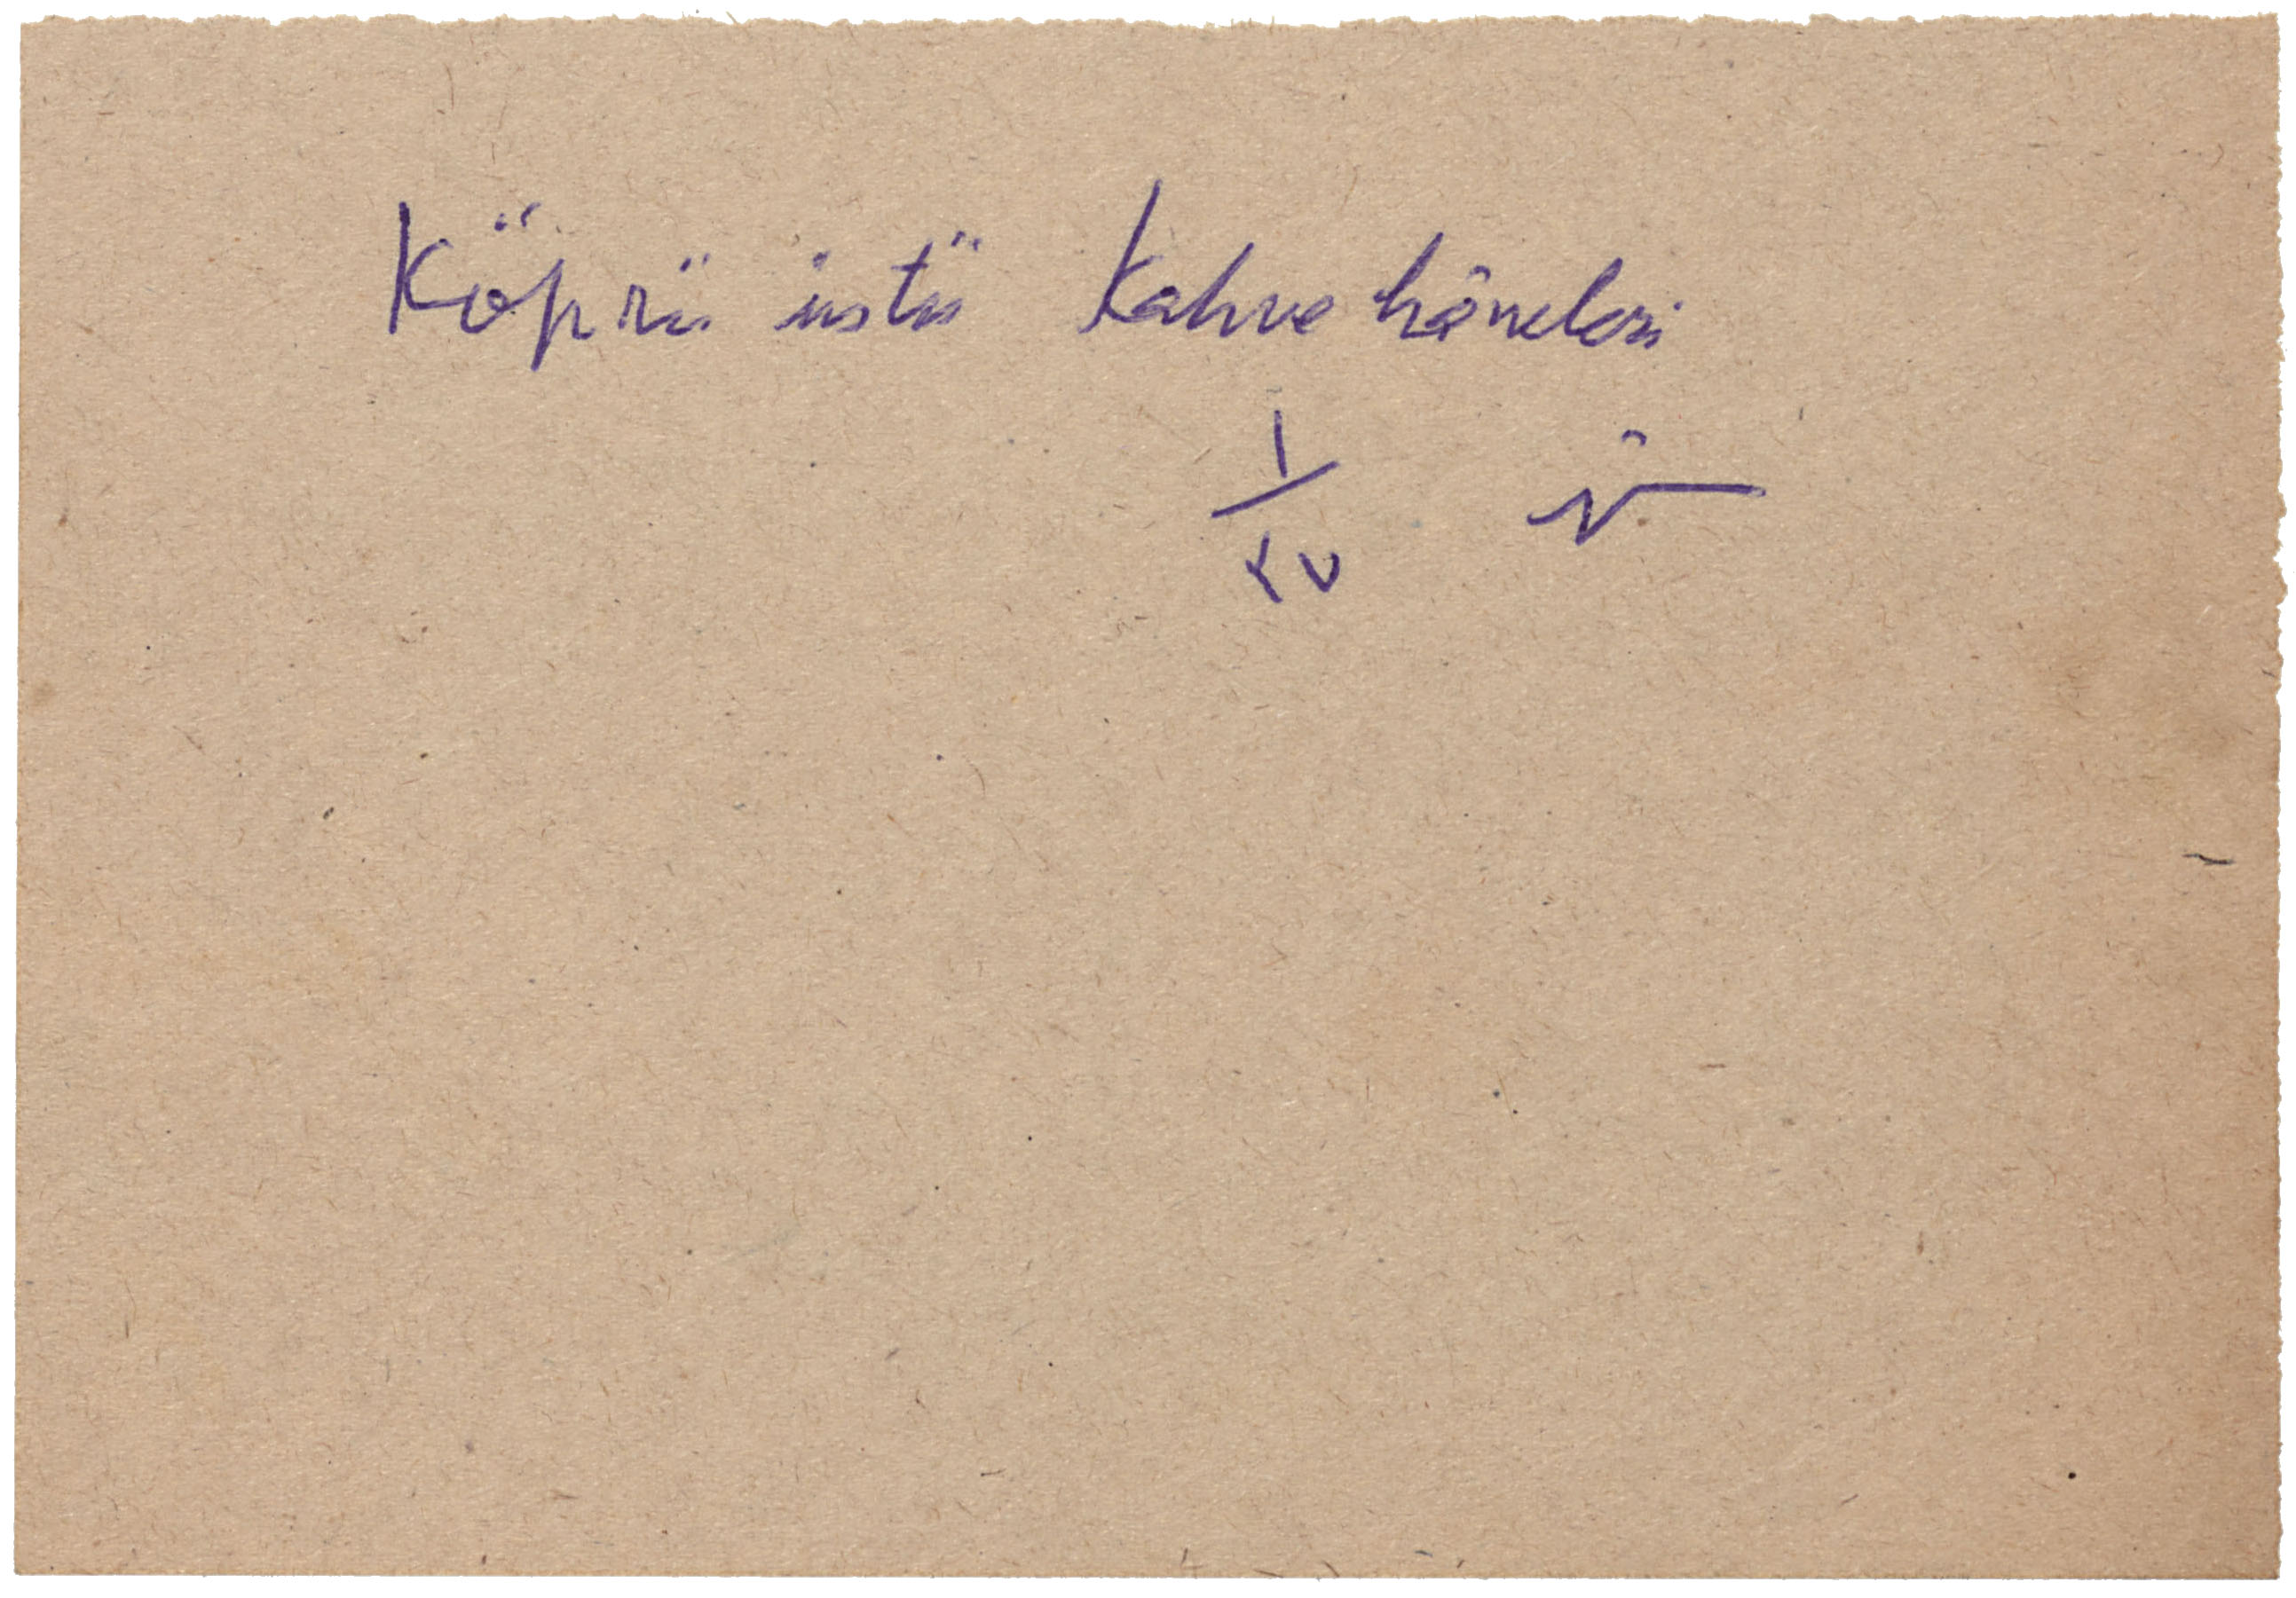 Köprü üstü Kahvehâneleri
١
٢٧